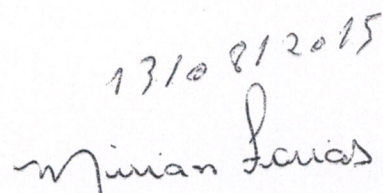 13/08/2015
Mirian Farias